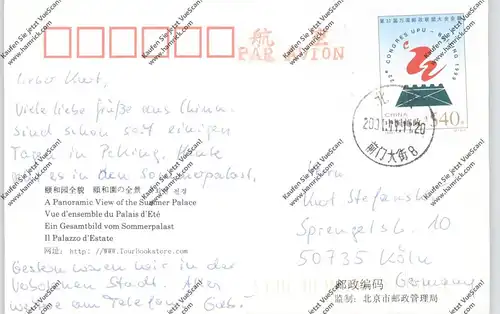 航空
PAR AVION
第22届万国邮政联盟大会
22nd CONGRESS UPU - BEIJING 1999
CHINA
中国邮政
540
北
2001.11.11.20
前门大街8
Lieber Kurt,
Viele liebe Grüße aus China
sind schon seit einigen
Tagen in Peking. Heute
es in den Sommerpalast,
颐和园全貌 頤和園の全景 전경
A Panoramic View of the Summer Palace
Vue d'ensemble du Palais d'Eté
Ein Gesamtbild vom Sommerpalast
Il Palazzo d'Estate
网址: http://www.Tourbookstore.com
Gestern waren wir in der
verbotenen Stadt.
am Telefon.
Herrn
Kurt
Sprengelstr. 10
50735 Köln
Germany
邮政编码
监制: 北京市邮政管理局
Kaufen Sie jetzt VueScan!
www.hamrick.com